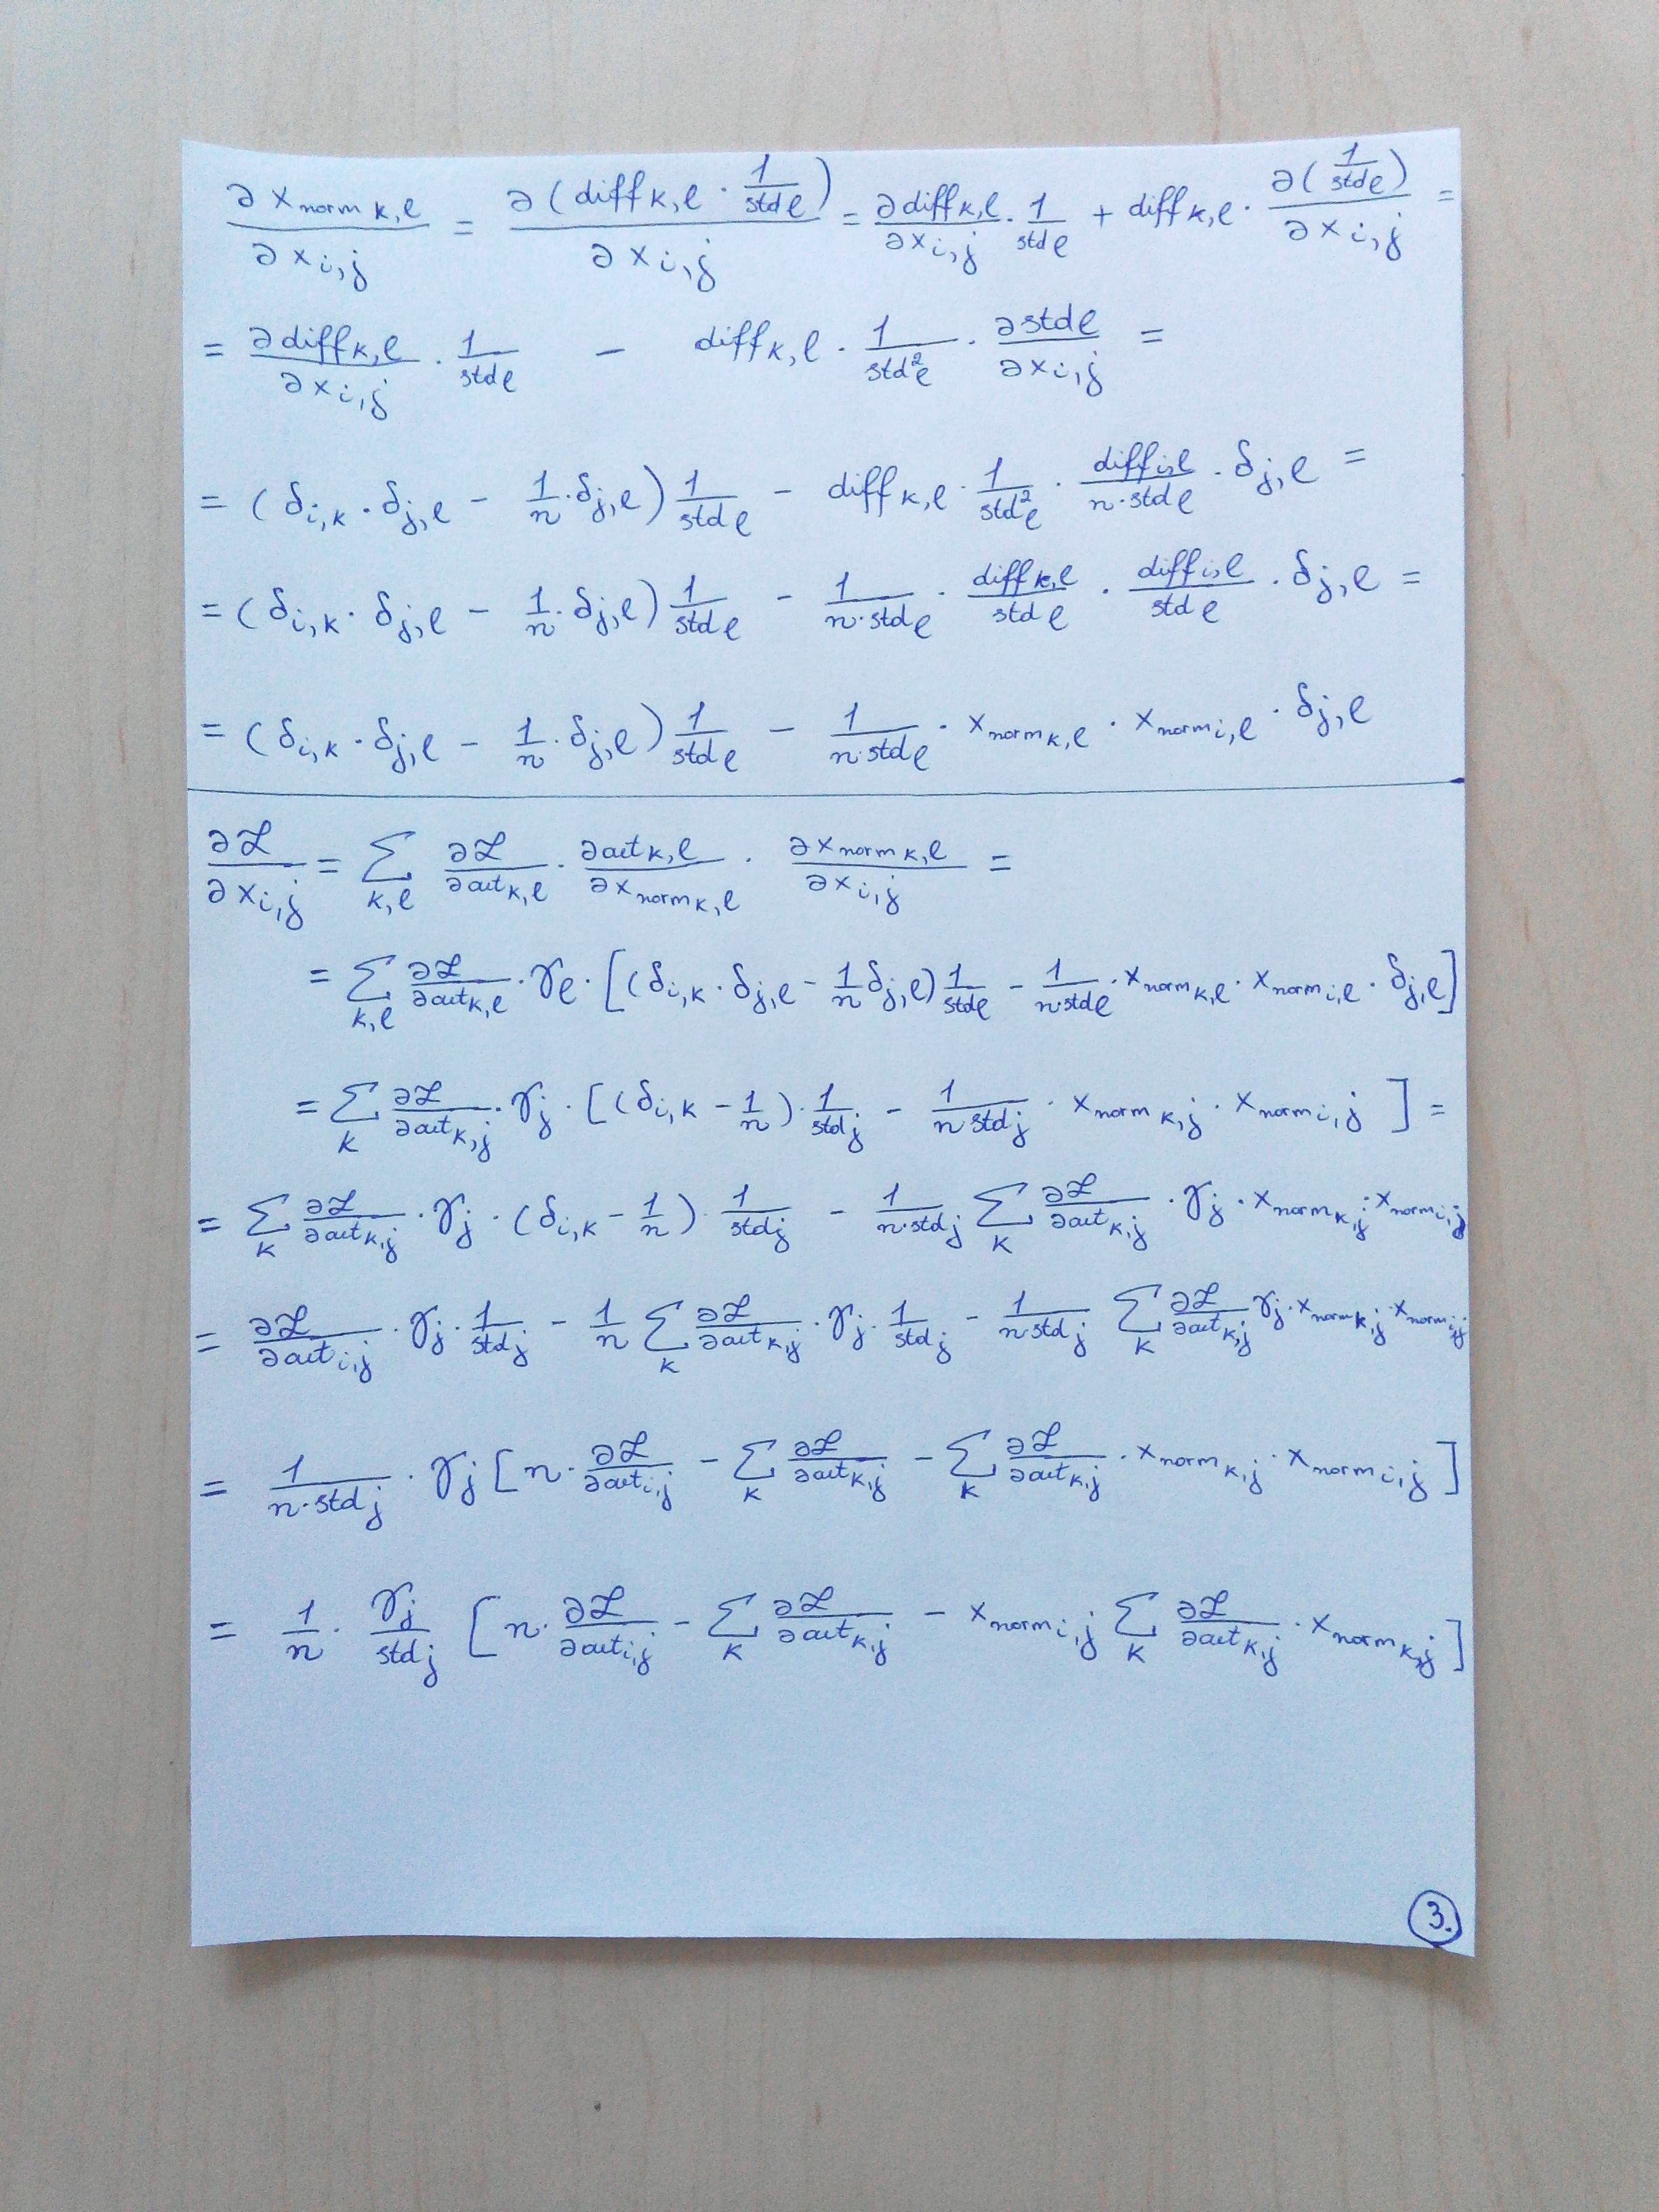 ∂x_{norm k,l} / ∂x_{i,j} = ∂(diff_{k,l} · 1/std_l) / ∂x_{i,j} = ∂diff_{k,l}/∂x_{i,j} · 1/std_l + diff_{k,l} · ∂(1/std_l)/∂x_{i,j} =
= ∂diff_{k,l}/∂x_{i,j} · 1/std_l − diff_{k,l} · 1/std_l² · ∂std_l/∂x_{i,j} =
= (δ_{i,k} · δ_{j,l} − 1/n · δ_{j,l}) 1/std_l − diff_{k,l} · 1/std_l² · diff_{i,l}/(n·std_l) · δ_{j,l} =
= (δ_{i,k} · δ_{j,l} − 1/n · δ_{j,l}) 1/std_l − 1/(n·std_l) · diff_{k,l}/std_l · diff_{i,l}/std_l · δ_{j,l} =
= (δ_{i,k} · δ_{j,l} − 1/n · δ_{j,l}) 1/std_l − 1/(n·std_l) · x_{norm k,l} · x_{norm i,l} · δ_{j,l}
∂ℒ/∂x_{i,j} = Σ_{k,l} ∂ℒ/∂out_{k,l} · ∂out_{k,l}/∂x_{norm k,l} · ∂x_{norm k,l}/∂x_{i,j} =
= Σ_{k,l} ∂ℒ/∂out_{k,l} · γ_l · [(δ_{i,k} · δ_{j,l} − 1/n δ_{j,l}) 1/std_l − 1/(n·std_l) · x_{norm k,l} · x_{norm i,l} · δ_{j,l}]
= Σ_k ∂ℒ/∂out_{k,j} · γ_j · [(δ_{i,k} − 1/n) · 1/std_j − 1/(n std_j) · x_{norm k,j} · x_{norm i,j}] =
= Σ_k ∂ℒ/∂out_{k,j} · γ_j · (δ_{i,k} − 1/n) · 1/std_j − 1/(n·std_j) Σ_k ∂ℒ/∂out_{k,j} · γ_j · x_{norm k,j} · x_{norm i,j}
= ∂ℒ/∂out_{i,j} · γ_j · 1/std_j − 1/n Σ_k ∂ℒ/∂out_{k,j} · γ_j · 1/std_j − 1/(n std_j) Σ_k ∂ℒ/∂out_{k,j} γ_j · x_{norm k,j} · x_{norm i,j}
= 1/(n·std_j) · γ_j [n · ∂ℒ/∂out_{i,j} − Σ_k ∂ℒ/∂out_{k,j} − Σ_k ∂ℒ/∂out_{k,j} · x_{norm k,j} · x_{norm i,j}]
= 1/n · γ_j/std_j [n · ∂ℒ/∂out_{i,j} − Σ_k ∂ℒ/∂out_{k,j} − x_{norm i,j} Σ_k ∂ℒ/∂out_{k,j} · x_{norm k,j}]
3.